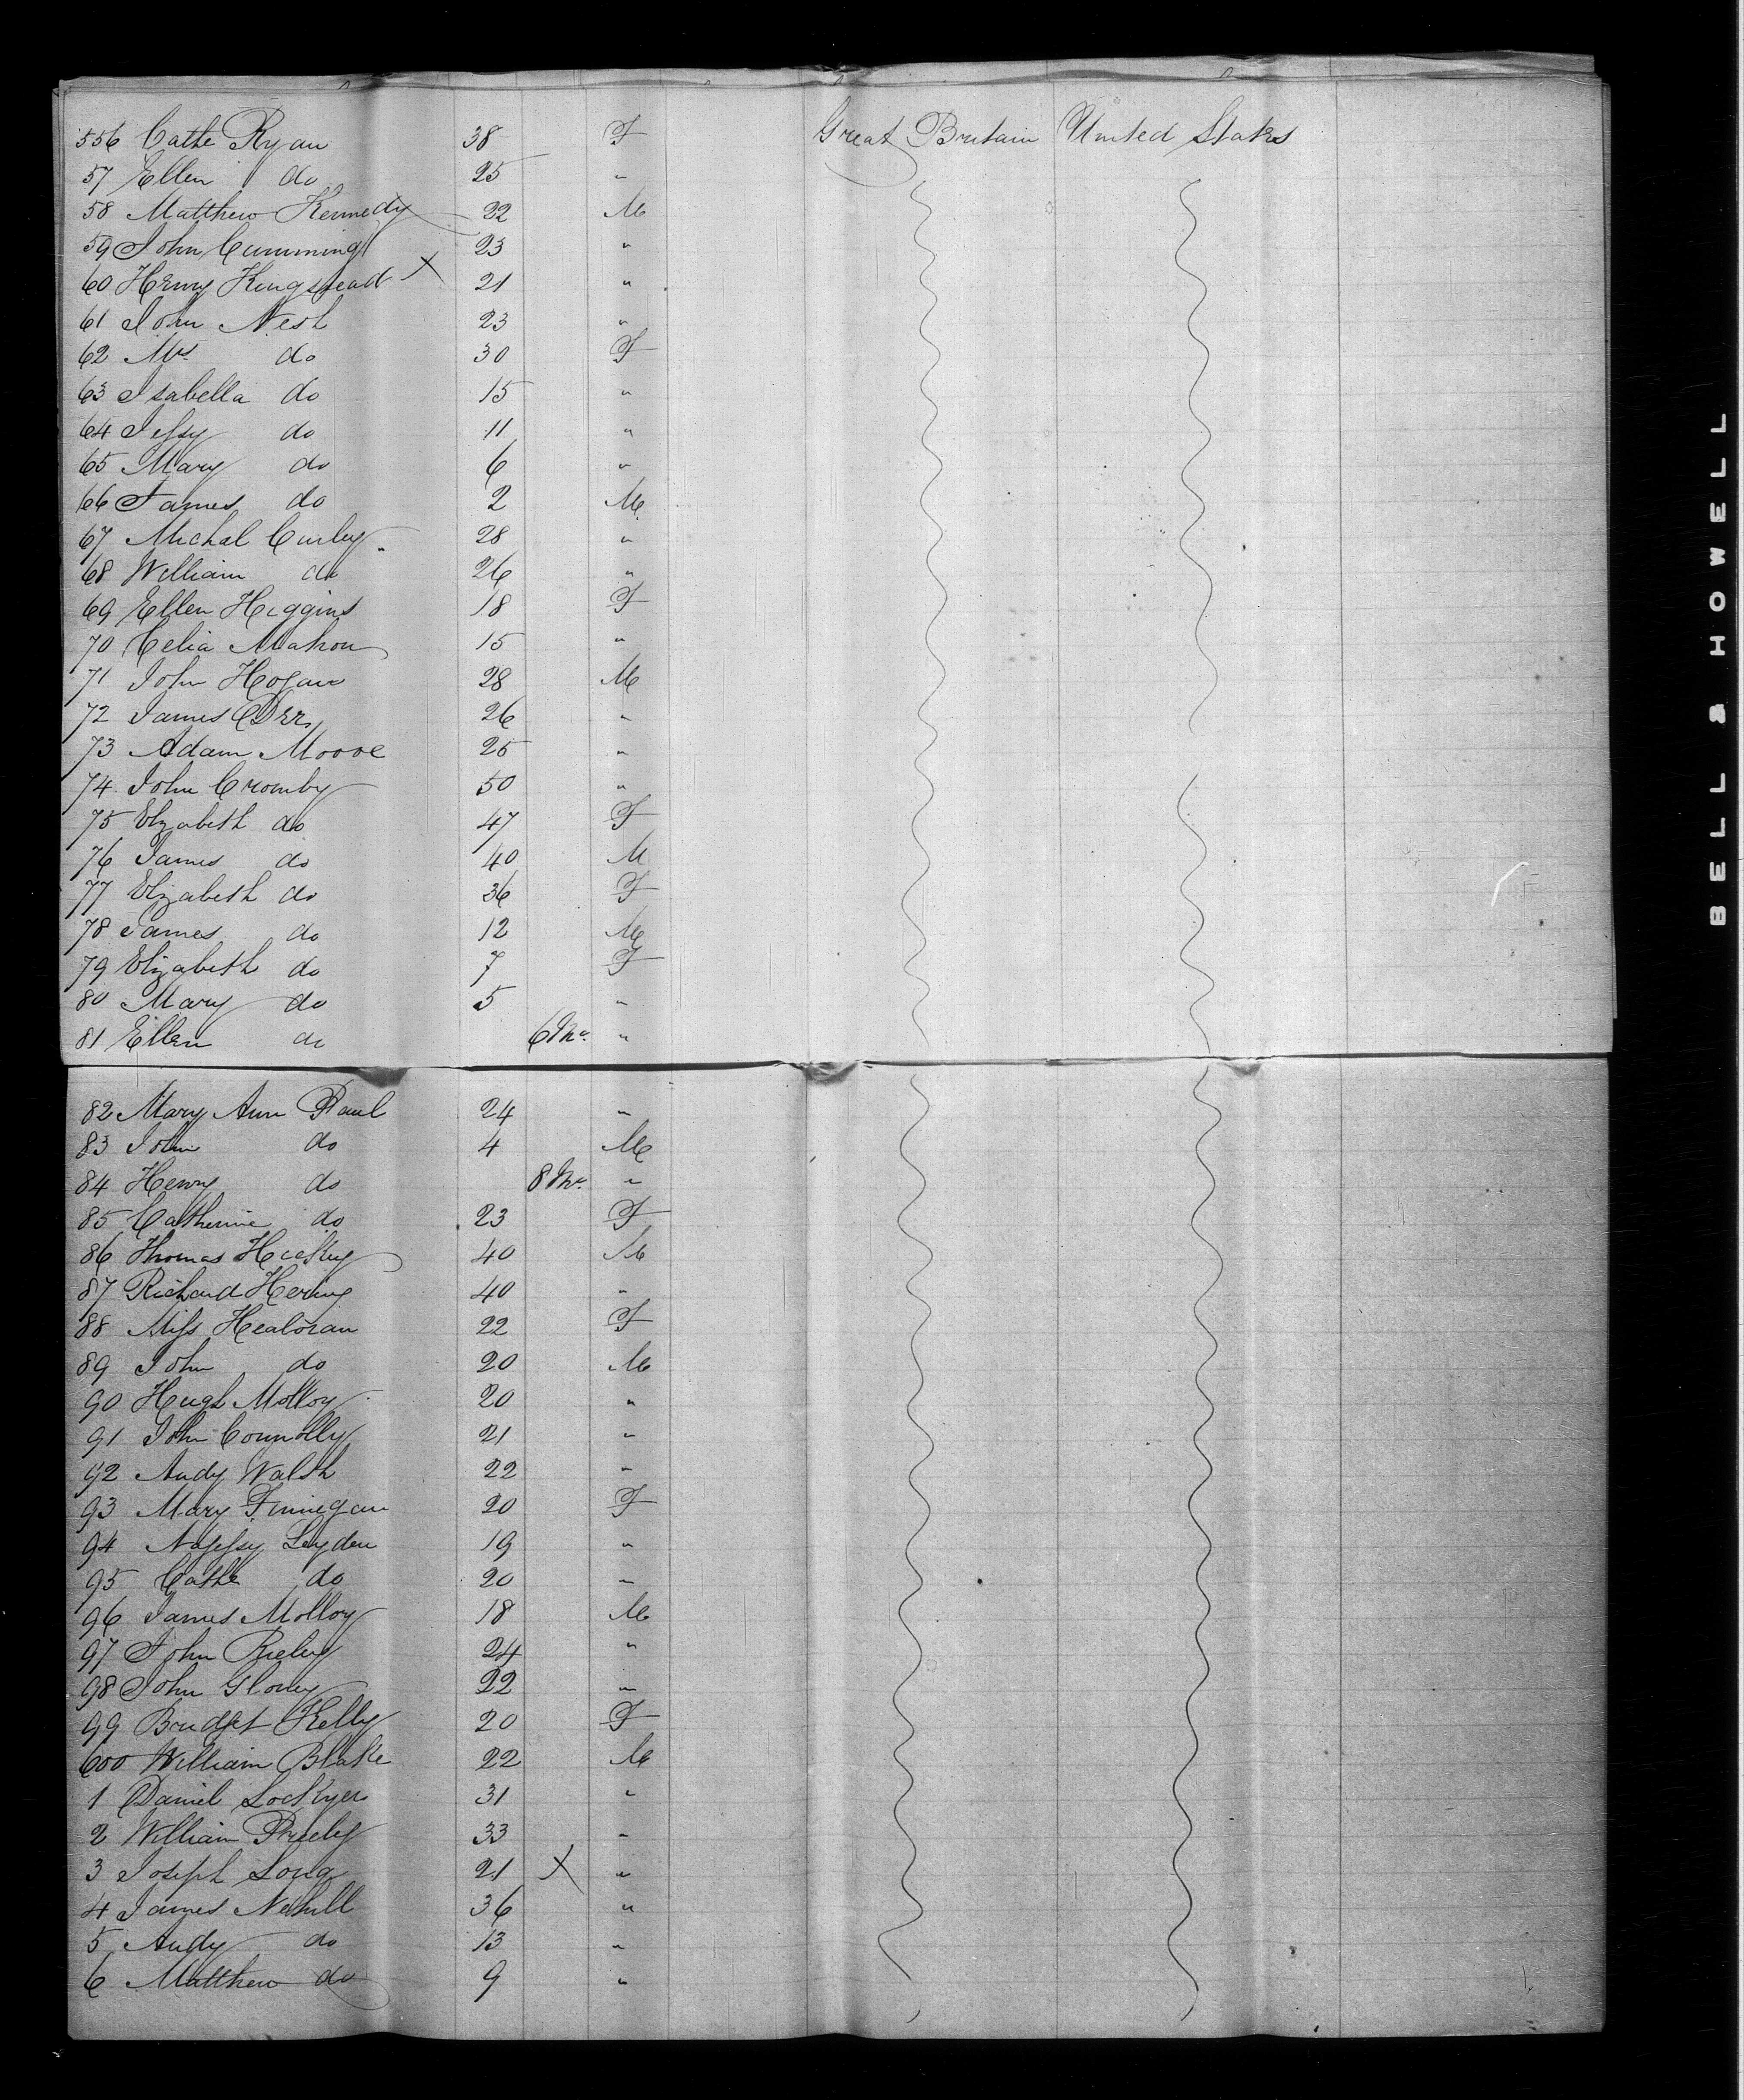 556 Cathe Ryan 38 F Great Britain United States
57 Ellen do 25 "
58 Matthew Kennedy 22 M
59 John Cumming 23 "
60 Henry Kingstead X 21 "
61 John Nesh 23 "
62 Mrs do 30 F
63 Isabella do 15 "
64 Jessy do 11 "
65 Mary do 6 "
66 James do 2 M
67 Michal Curley 28 "
68 William do 26 "
69 Ellen Higgins 18 F
70 Celia Mahon 15 "
71 John Hogan 28 M
72 James Orr 26 "
73 Adam Moore 25 "
74 John Cromby 50 "
75 Elizabeth do 47 F
76 James do 40 M
77 Elizabeth do 36 F
78 James do 12 M
79 Elizabeth do 7 F
80 Mary do 5 "
81 Ellen do 6 Mo. "
82 Mary Ann Paul 24 "
83 John do 4 M
84 Henry do 8 Mo. "
85 Catherine do 23 F
86 Thomas 40 M
87 Richard Hering 40 "
88 Miss Healoran 22 F
89 John do 20 M
90 Hugh Molloy 20 "
91 John Connolly 21 "
92 Andy Walsh 22 "
93 Mary Finnegan 20 F
94 Leyden 19 "
95 Cathe do 20 "
96 James Molloy 18 M
97 John 24 "
98 John Gloney 22 "
99 Bridget Kelly 20 F
600 William Blake 22 M
1 Daniel Lockyer 31 "
2 William 33 "
3 Joseph Long 21 X "
4 James Nethill 36 "
5 Andy do 13 "
6 Matthew do 9 "
BELL & HOWELL